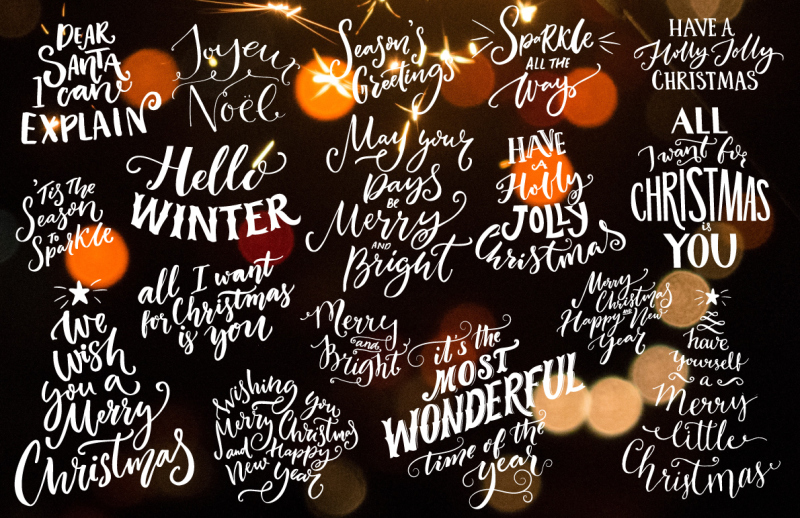 DEAR
SANTA
I can
EXPLAIN
Joyeux
Noël
Season's
Greetings
SPaRKLe
ALL THE
Way
HAVE A
Holly Jolly
CHRISTMAS
'Tis The
Season
To
Sparkle
Hello
WINTER
May your
Days
BE
Merry
AND
Bright
HAVE
A
Holly
JOLLY
Christmas
ALL
I want for
CHRISTMAS
is
YOU
all I want
for Christmas
is you
We
wish
you a
Merry
Christmas
Merry
and
Bright
Merry
Christmas
and
Happy New
Year
it's the
MOST
WONDERFUL
time of the
year
Wishing you
Merry Christmas
and Happy
New Year
have
yourself
a
Merry
little
Christmas